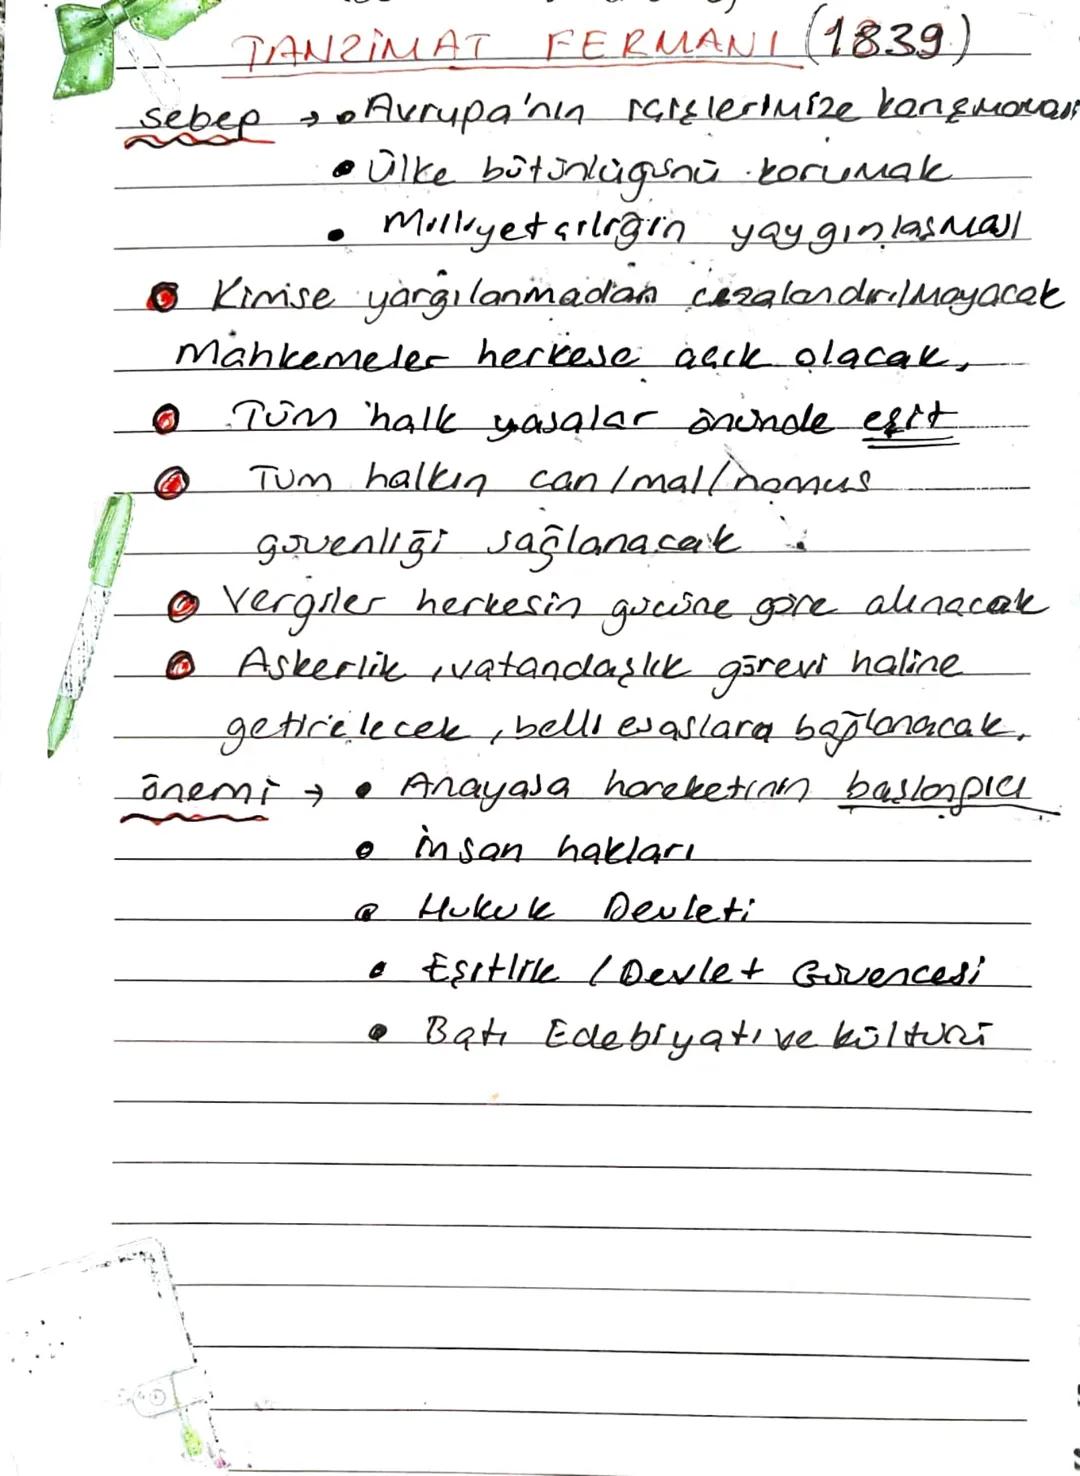 TANZİMAT FERMANI (1839)
sebep → • Avrupa'nın içişlerimize karışmaması
• Ülke bütünlüğünü korumak
• Milliyetçiliğin yaygınlaşması
Kimse yargılanmadan cezalandırılmayacak
Mahkemeler herkese açık olacak,
Tüm halk yasalar önünde eşit
Tüm halkın can/mal/namus
güvenliği sağlanacak
Vergiler herkesin gücüne göre alınacak
Askerlik, vatandaşlık görevi haline
getirilecek, belli esaslara bağlanacak.
önemi → • Anayasa hareketinin başlangıcı
• İnsan hakları
• Hukuk Devleti
• Eşitlik / Devlet Güvencesi
• Batı Edebiyatı ve kültürü